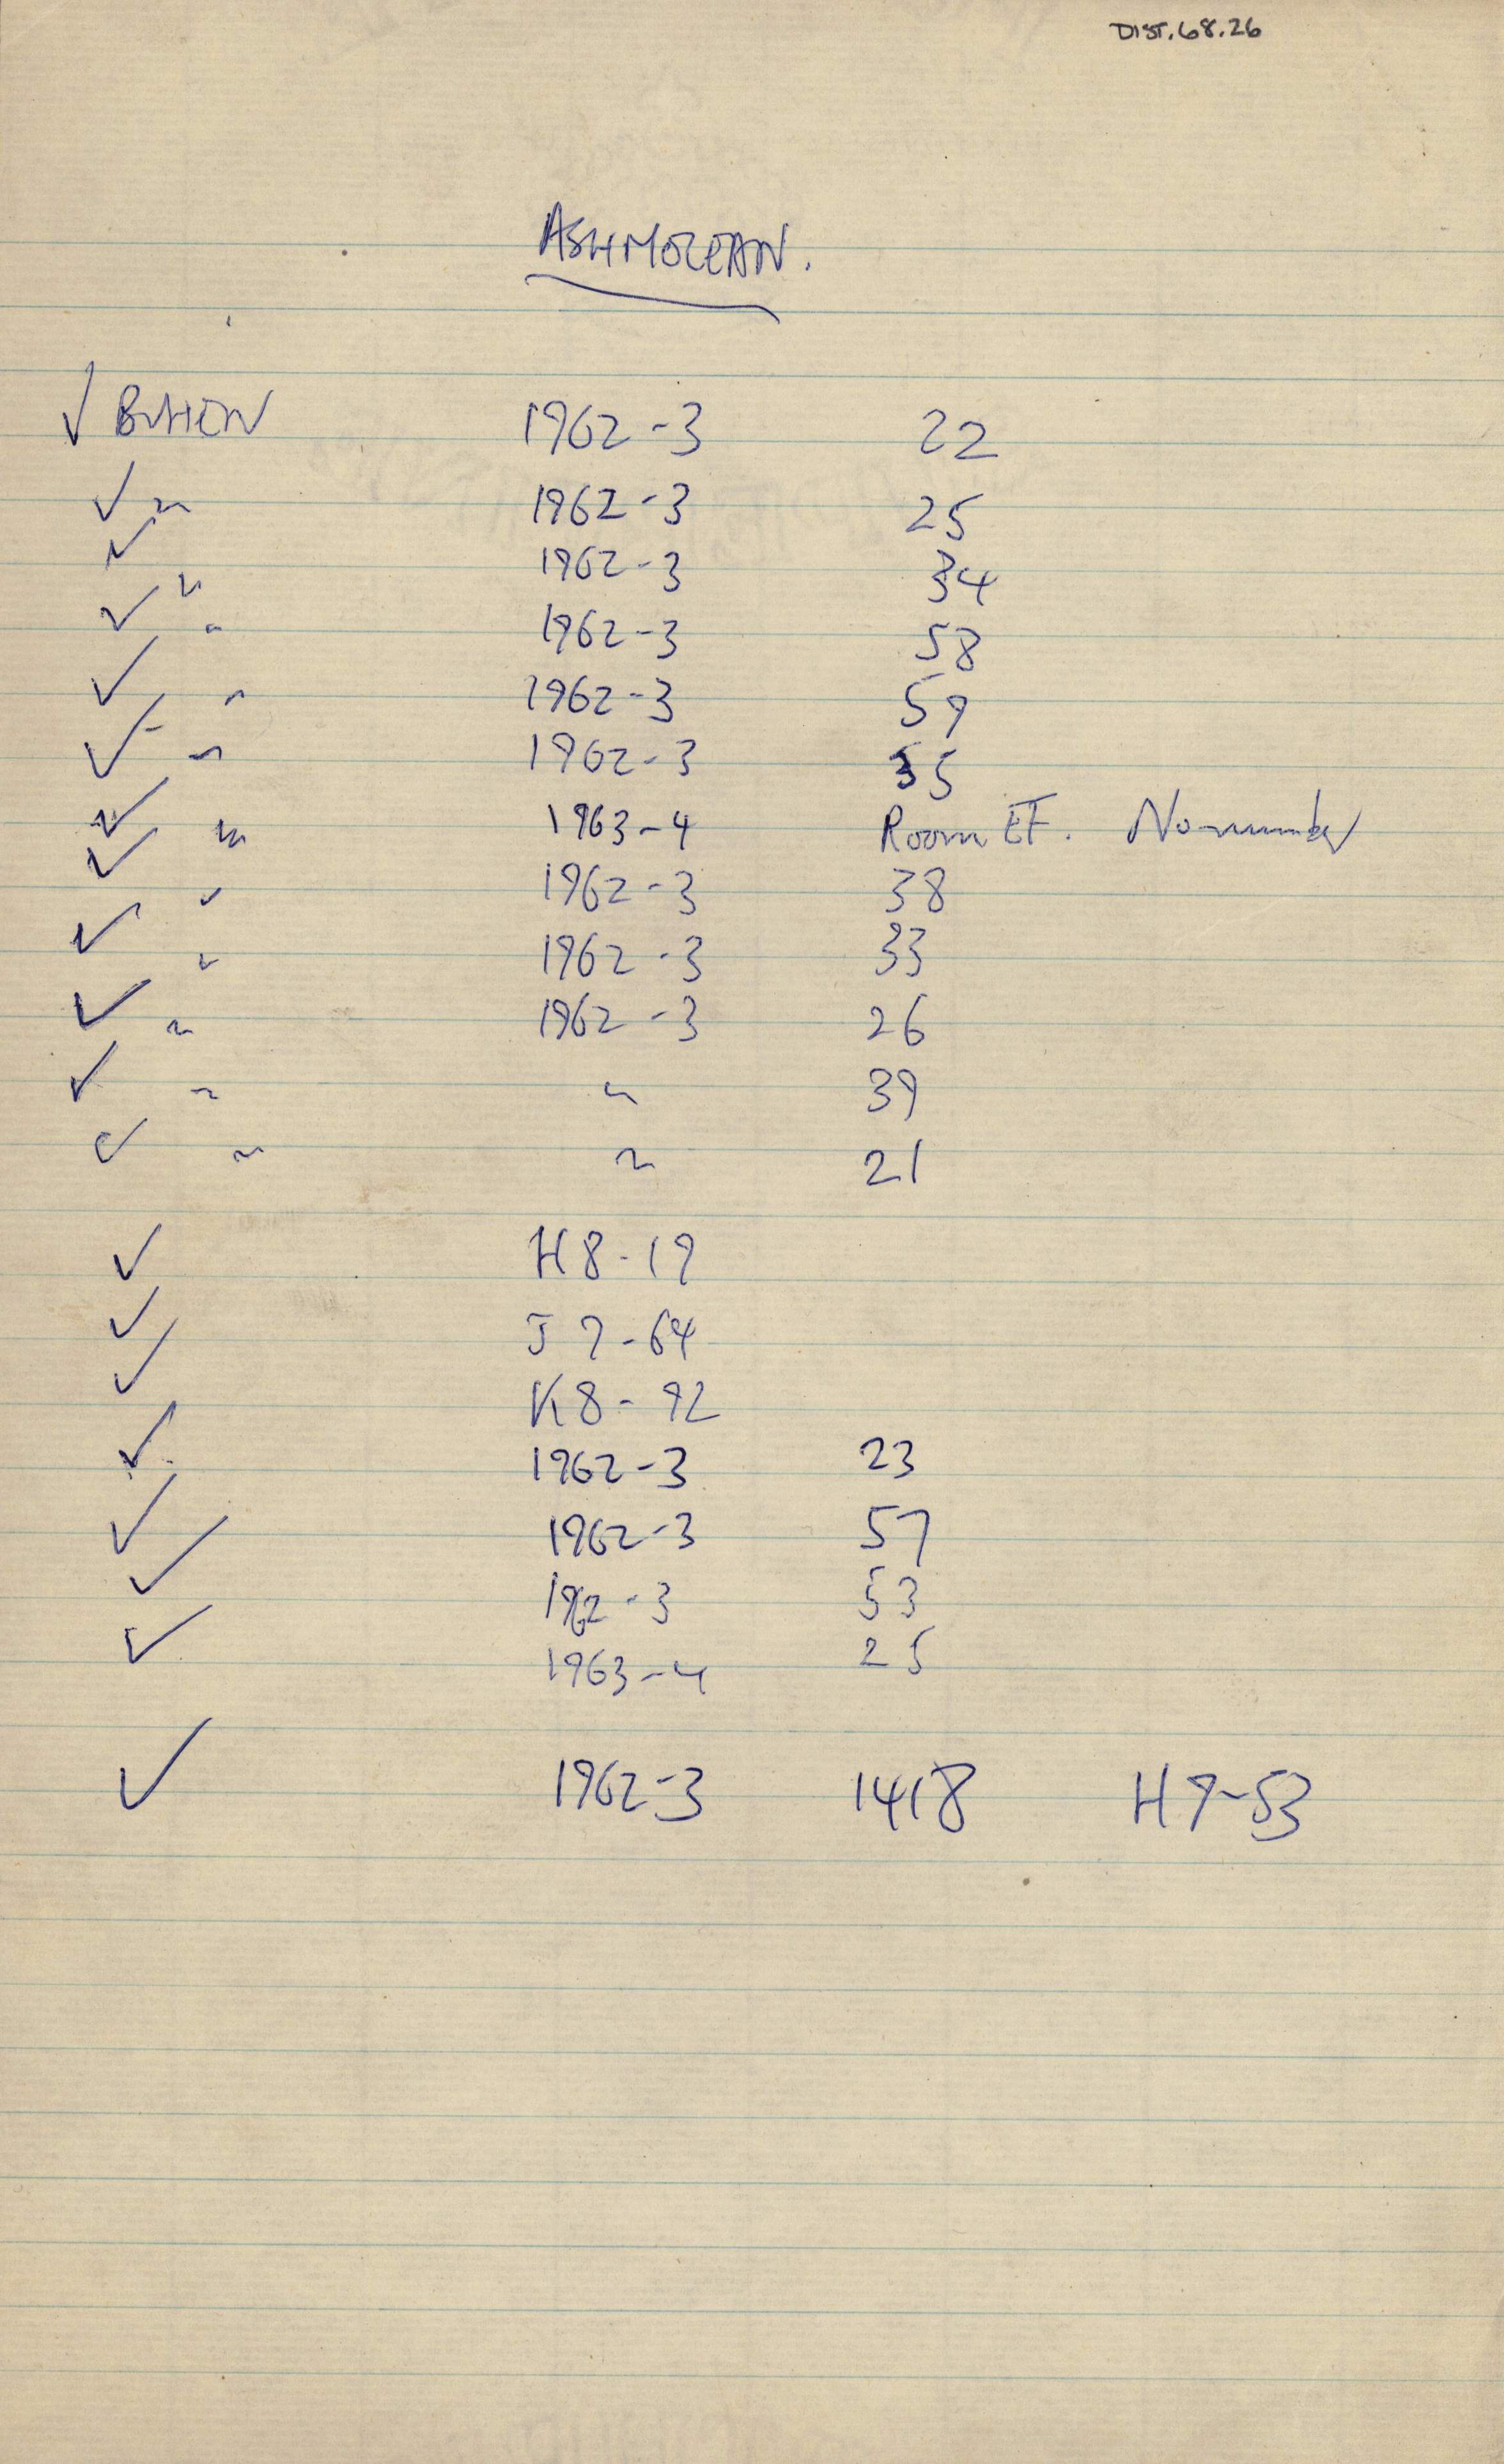 DIST.68.26
ASHMOLEAN.
✓ BUHEN 1962-3 22
✓ " 1962-3 25
✓ " 1962-3 34
✓ " 1962-3 58
✓ " 1962-3 59
✓ " 1962-3 55
✓ " 1963-4 Room EF. No number
✓ " 1962-3 38
✓ " 1962-3 33
✓ " 1962-3 26
✓ " " 39
✓ " " 21
✓ H8-19
✓ J9-64
✓ K8-92
✓ 1962-3 23
✓ 1962-3 57
✓ 1962-3 53
✓ 1963-4 25
✓ 1962-3 1418 H9-53